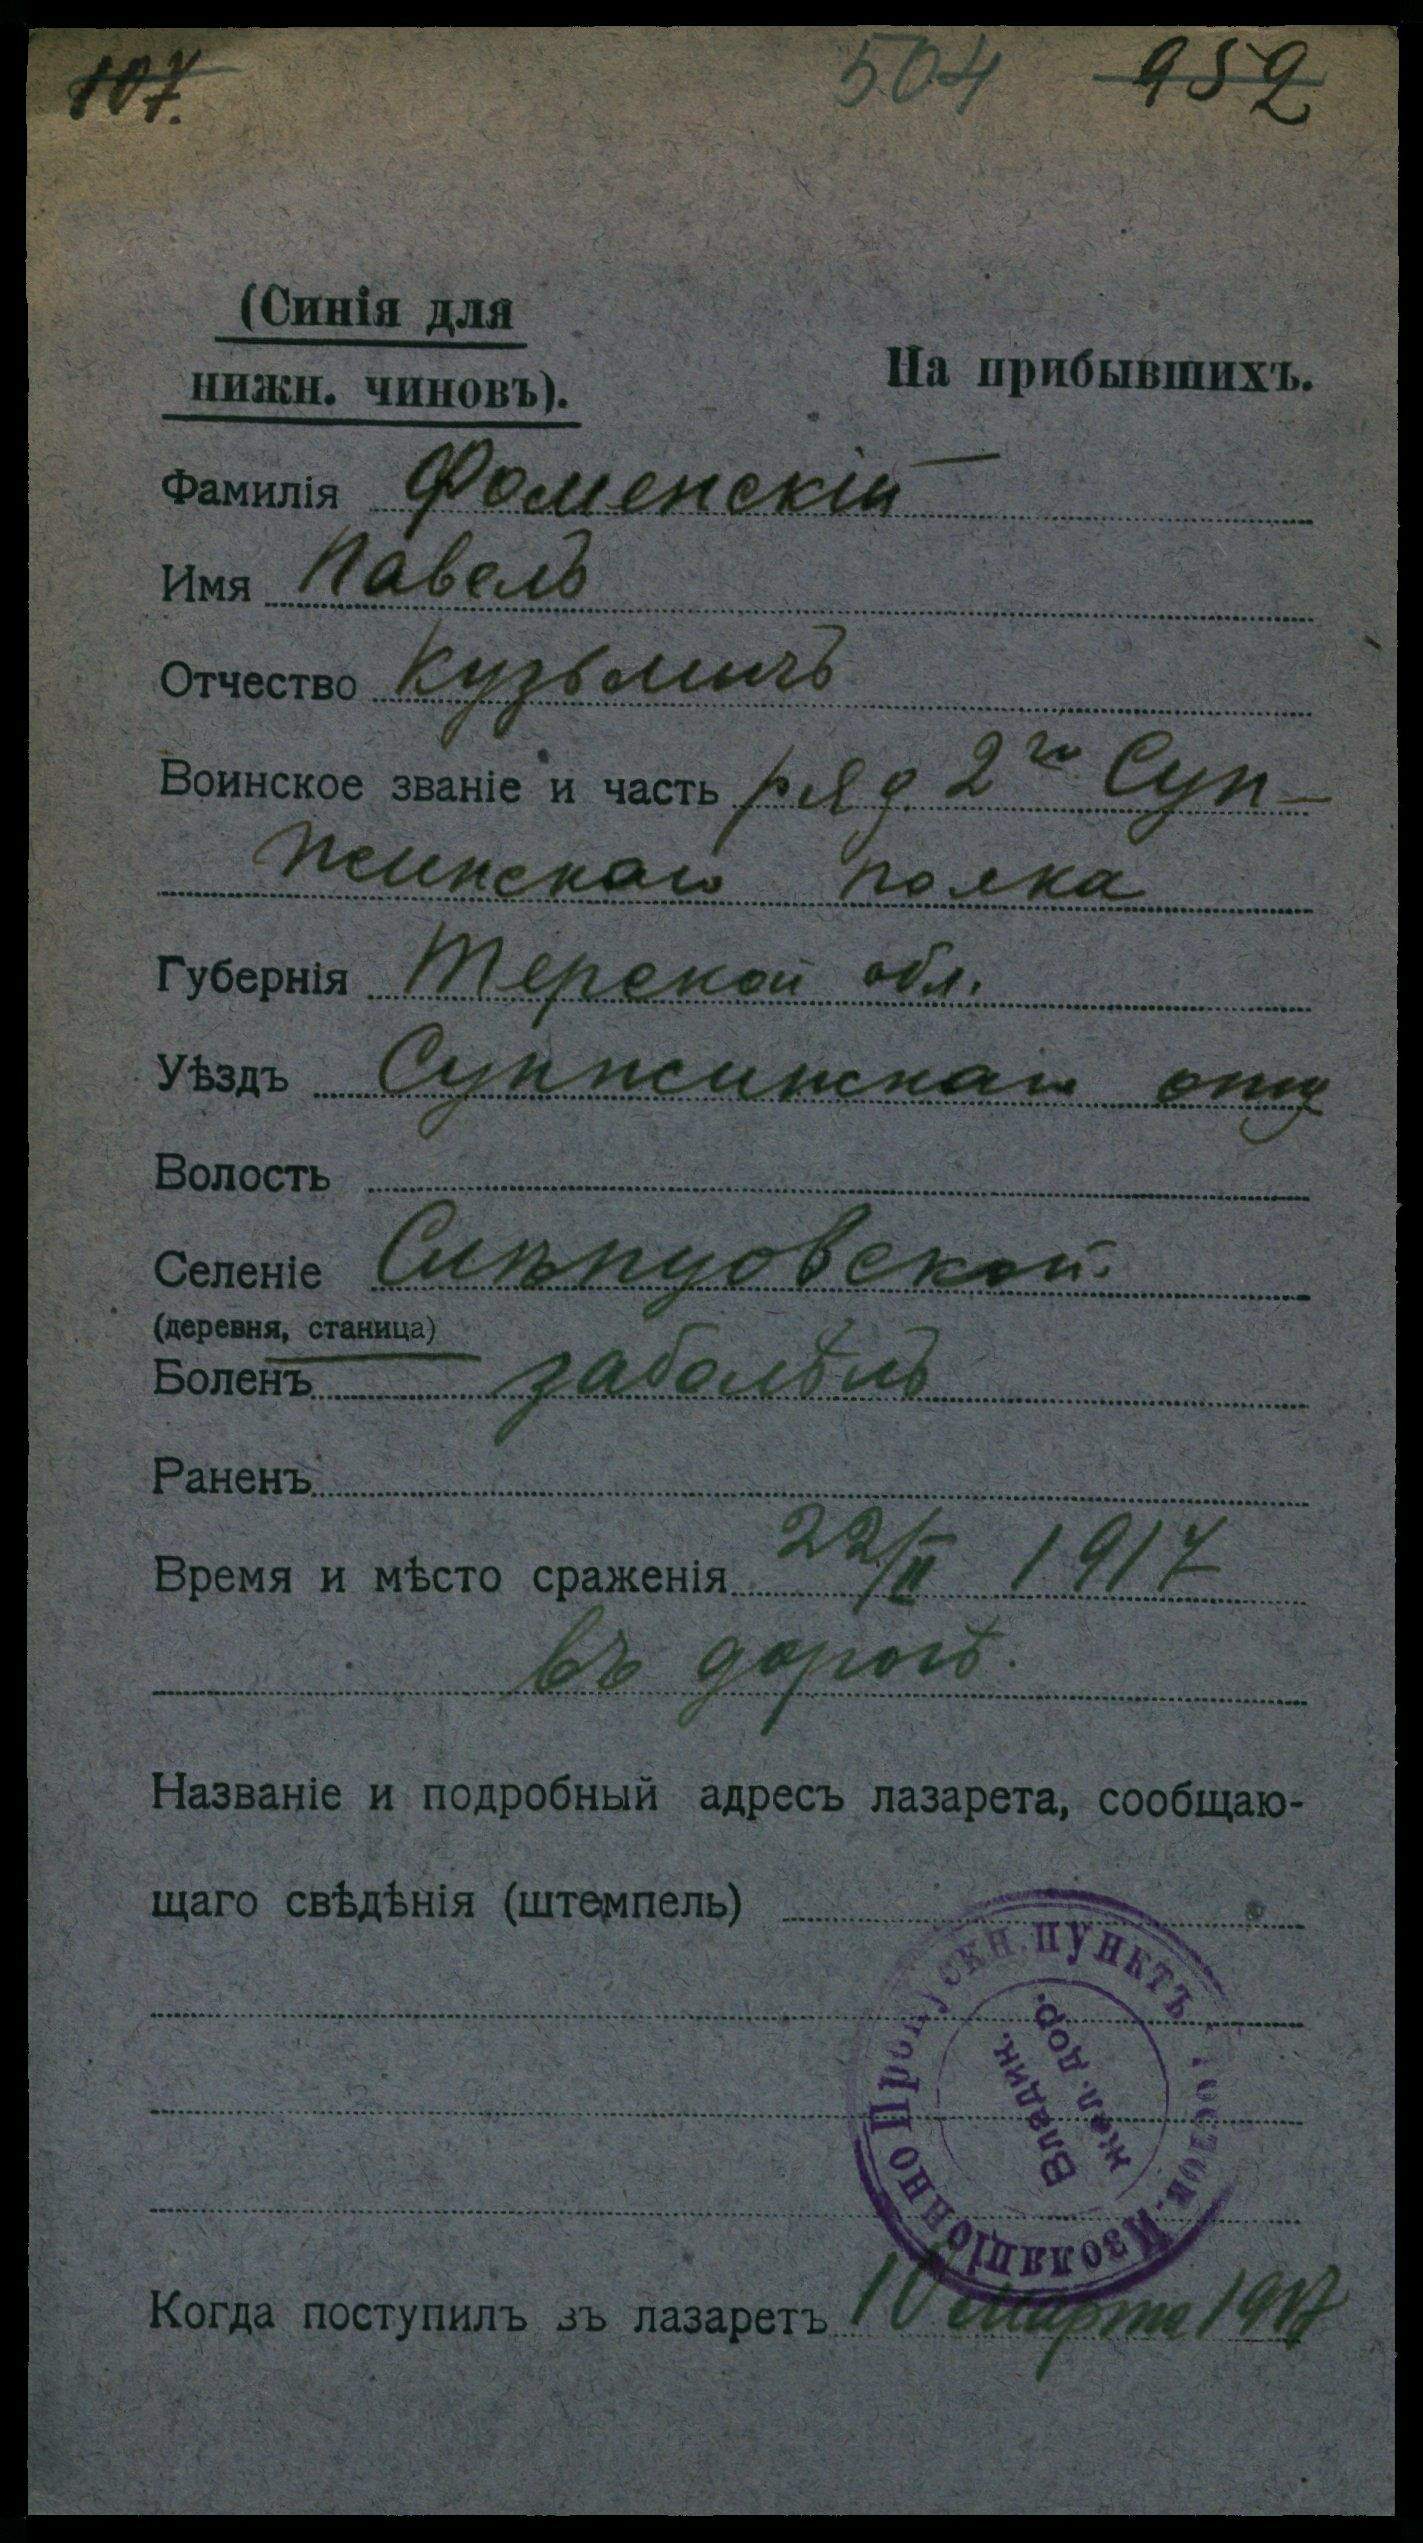 107. 504 952
(Синія для
нижн. чиновъ).
На прибывшихъ.
Фамилія Фоменскій
Имя Павелъ
Отчество Кузьмичъ
Воинское званіе и часть ряд. 2го Сун-
женскаго полка
Губернія Терской обл.
Уѣздъ Сунженскаго отд
Волость
Селеніе Слѣпцовской
(деревня, станица)
Боленъ заболѣлъ
Раненъ
Время и мѣсто сраженія 22/II 1917
въ дорогѣ.
Названіе и подробный адресъ лазарета, сообщаю-
щаго свѣдѣнія (штемпель)
Изоляціонно Пропускн. пунктъ
Владик.
жел. дор.
Когда поступилъ въ лазаретъ 10 марта 1917